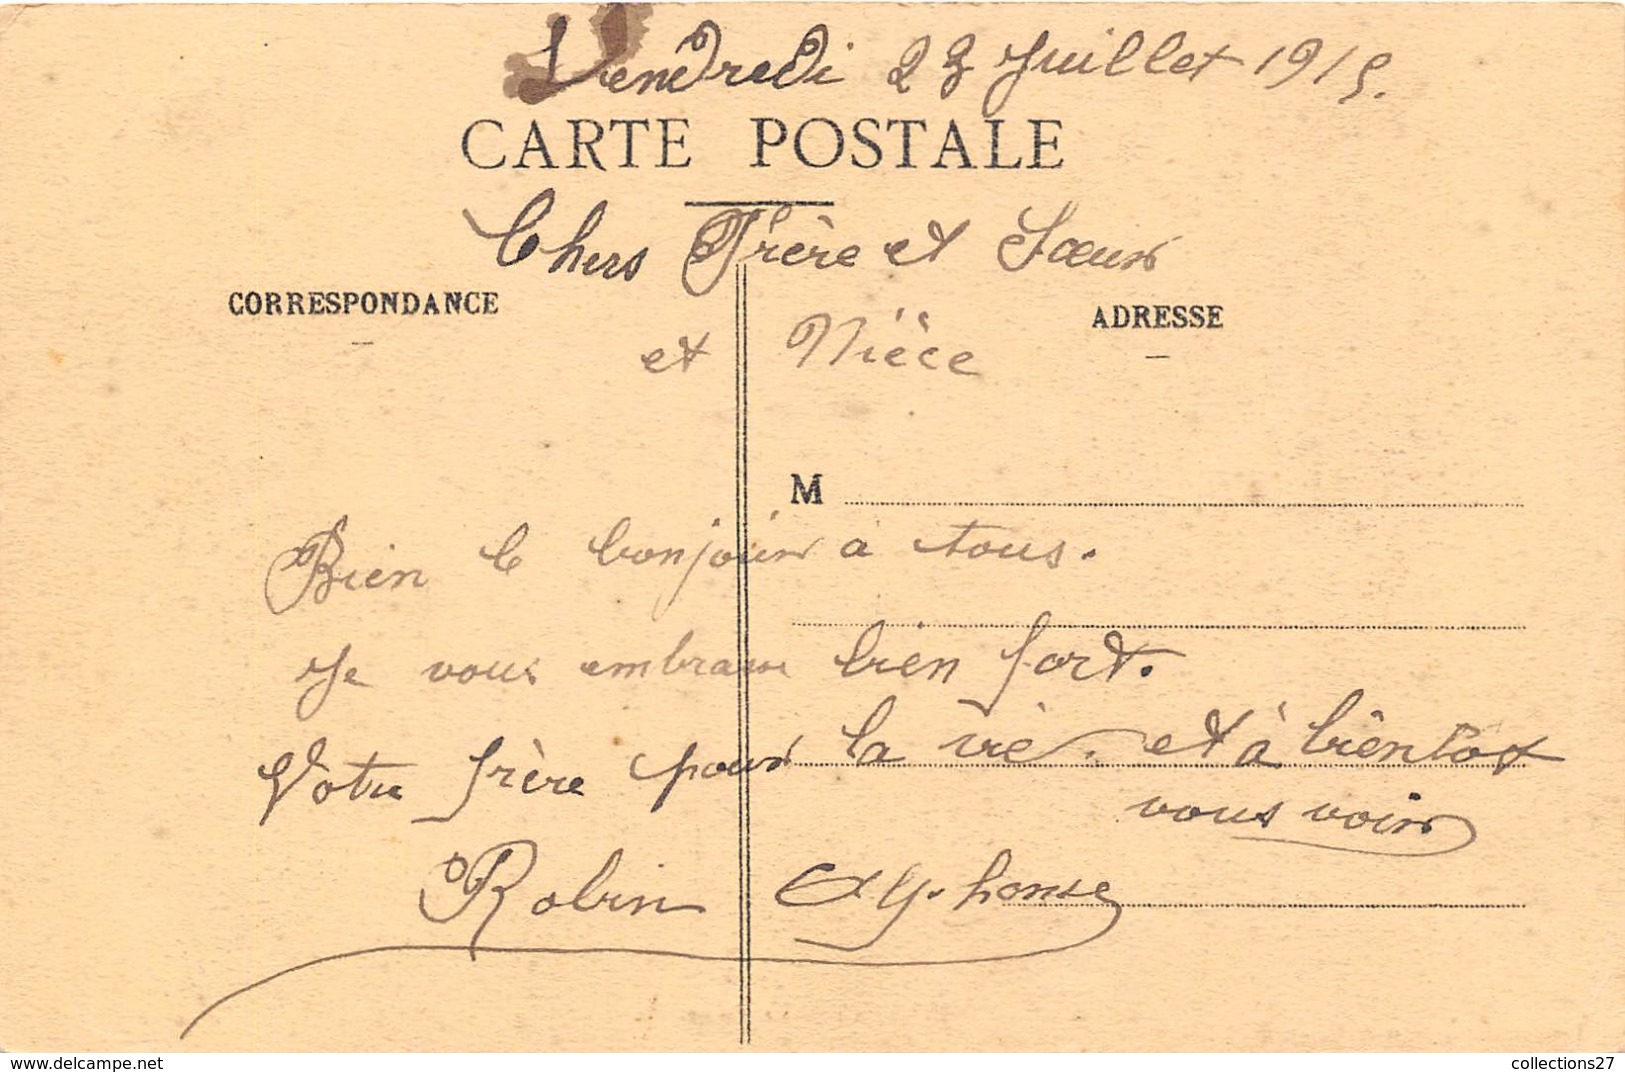 Vendredi 23 Juillet 1915.
CARTE POSTALE
Chers Frère et Sœur
CORRESPONDANCE
ADRESSE
et Nièce
M
Bien le bonjour à tous.
Je vous embrasse bien fort.
Votre frère pour la vie. et à bientot
vous voir
Robin Alphonse
www.delcampe.net
collections27